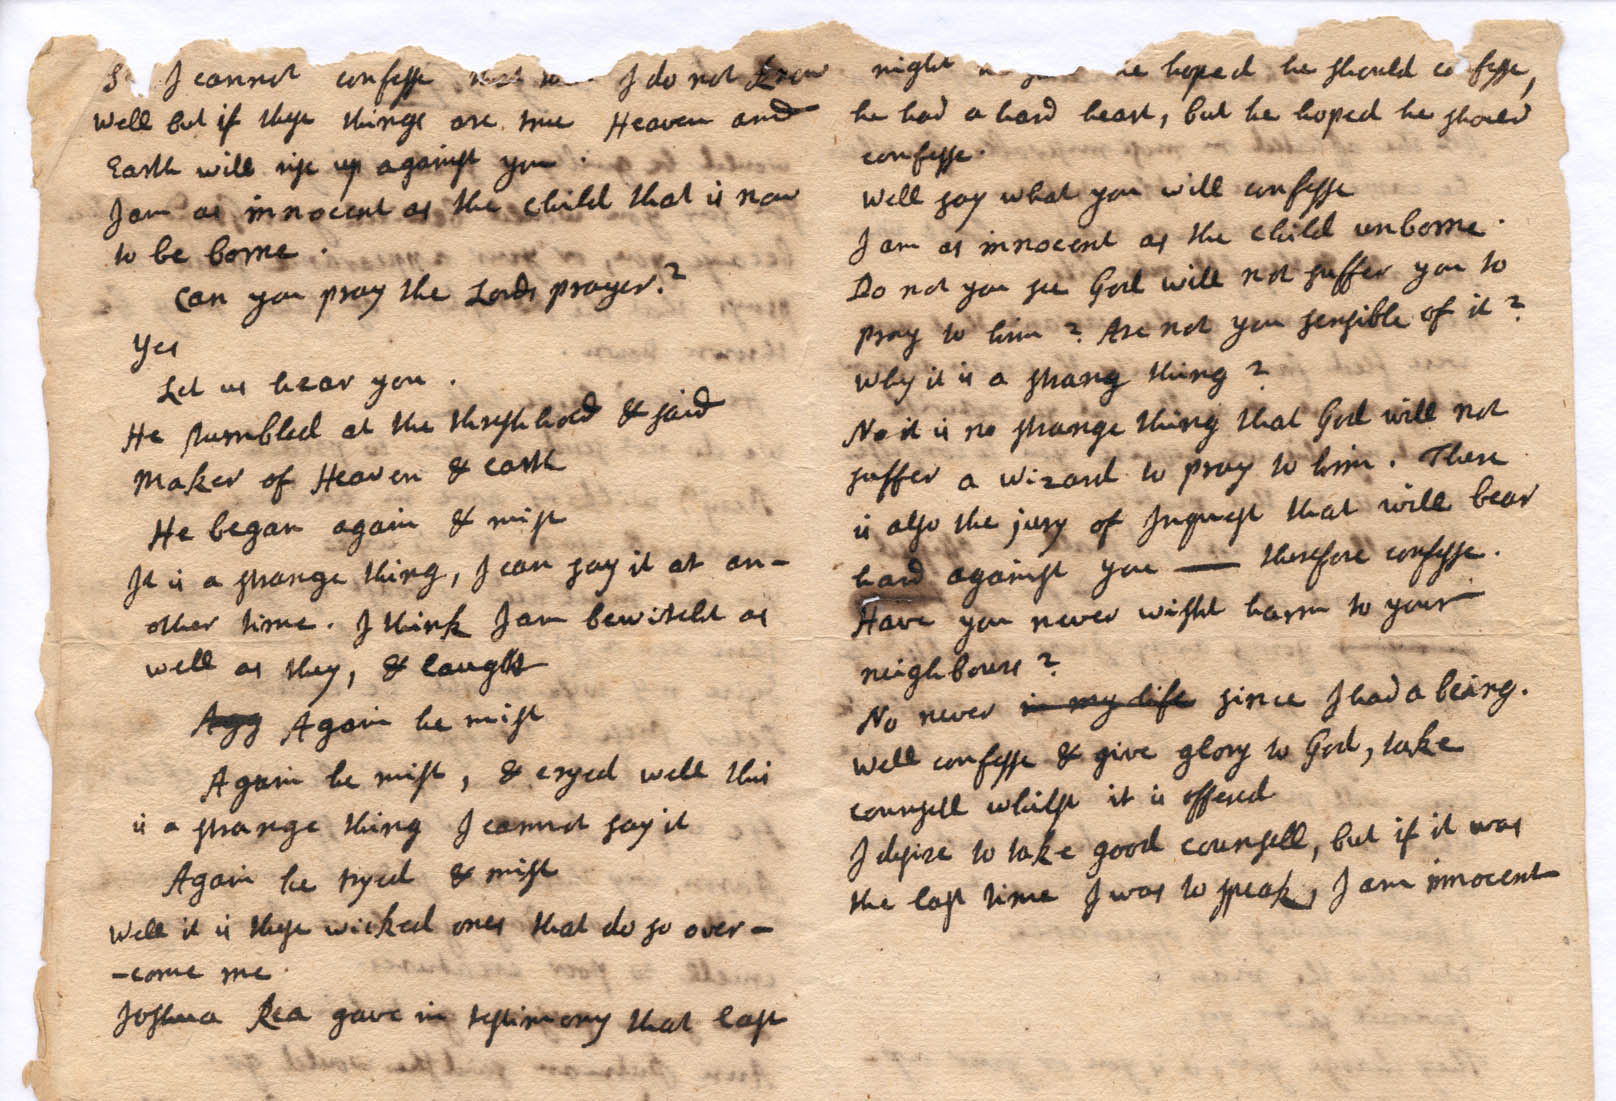 I cannot confesse I do not know
well but if these things are true Heaven and
Earth will rise up against you.
I am as innocent as the child that is now
to be borne.
Can you pray the Lords prayer?
Yes
Let us hear you.
He stumbled at the threshhold & said
Maker of Heaven & earth
He began again & mist
It is a strange thing, I can say it at an-
other time. I think I am bewitcht as
well as they, & laught
Again he mist
Again he mist, & cryed well this
is a strange thing I cannot say it
Again he tryed & mist
Well it is these wicked ones that do so over-
-come me.
Joshua Rea gave in testimony that last
night he hoped he should confesse,
he had a hard heart, but he hoped he should
confesse.
Well say what you will confesse
I am as innocent as the child unborne.
Do not you see God will not suffer you to
pray to him? Are not you sensible of it?
Why it is a strang thing?
No it is no strange thing that God will not
suffer a wizard to pray to him. There
is also the jury of Inquest that will bear
hard against you — therefore confesse.
Have you never wisht harm to your
neighbours?
No never in my life since I had a being.
Well confesse & give glory to God, take
counsell whilst it is offered
I desire to take good counsell, but if it was
the last time I was to speak, I am innocent